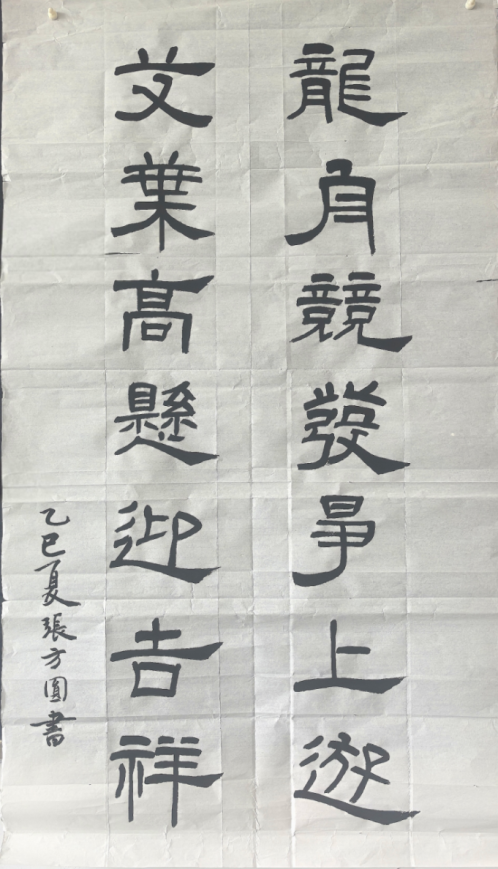 龍舟競發爭上遊
艾葉髙懸迎吉祥
乙巳夏張方圓書